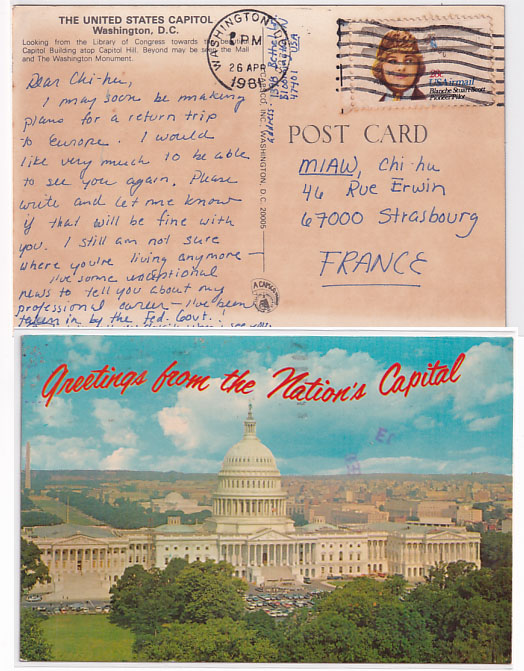 THE UNITED STATES CAPITOL
Washington, D.C.
Looking from the Library of Congress towards the
Capitol Building atop Capitol Hill. Beyond may be seen the Mall
and The Washington Monument.
Dear Chi-hui,
I may soon be making
plans for a return trip
to Europe. I would
like very much to be able
to see you again. Please
write and let me know
if that will be fine with
you. I still am not sure
where you're living anymore—
I've some exceptional
news to tell you about my
professional career—I've been
taken in by the Fed. Gout.!
WASHINGTON
PM
26 APR
Address:
Bloomington
47401 USA
INC., WASHINGTON, D.C. 20005
28c
USAirmail
Blanche Stuart Scott
Pioneer Pilot
POST CARD
MIAW, Chi-hu
46 Rue Erwin
67000 Strasbourg
FRANCE
Greetings from the Nation's Capital